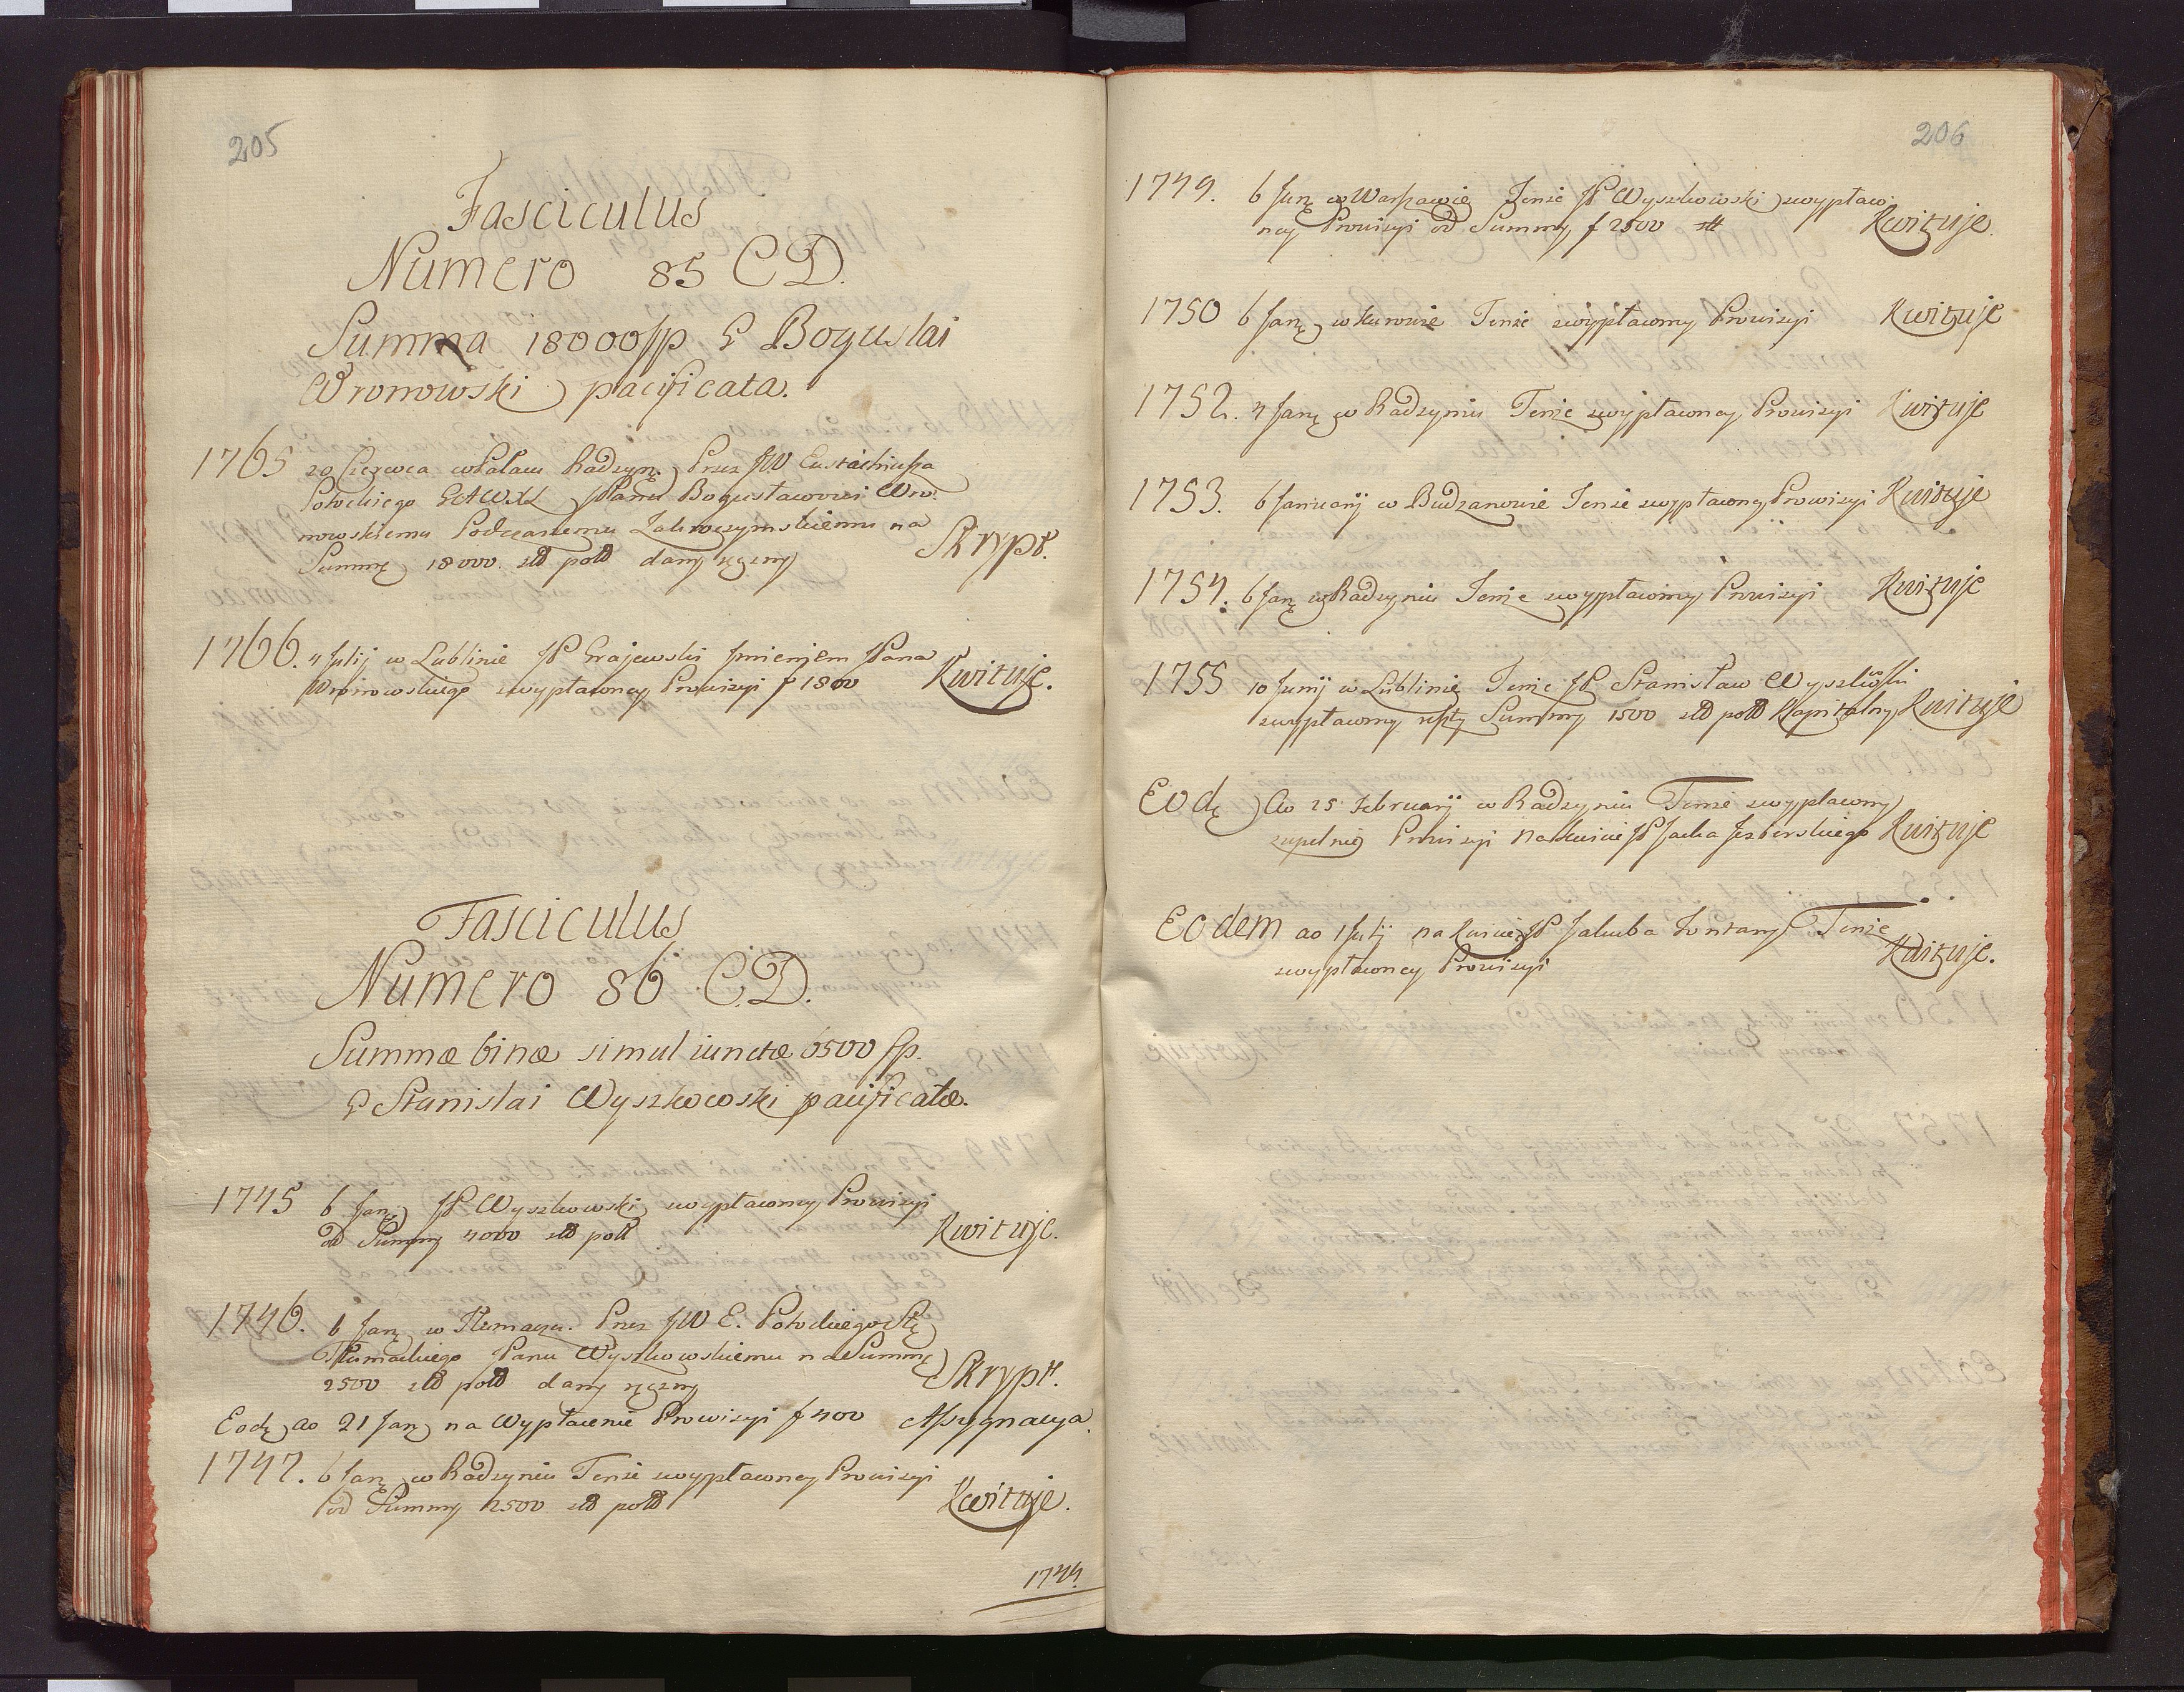 205
Fasciculus
Numero 85 CD.
Summa 18000 fp. G Boguslai
Wronowski pacificata.
1765 20 Czerwca w Pałacu Radzyn. Przez JW Eustachiusza
Potockiego GAWXL JPanu Bogusławowi Wro-
nowskiemu Podczaszemu Zakroczymskiemu na
Summę 18000 złł poll dany ręczny Skrypt.
1766. 4 Julij w Lublinie JP Grajewski Jmieniem JPana
Wronowskiego zwypłaconey Prowizyi f 1800 Kwituje.
Fasciculus
Numero 86 C.D.
Summæ binæ simul iunctæ 6500 fp.
G Stanislai Wyszkowski pacificatæ.
1745 6 Janę JP Wyszkowski zwypłaconey Prowizyi
od Summy 4000 złł poll Kwituje.
1746. 6 Janę w Tłumaczu. Przez JW E. Potockiego Stę
Tłumackiego JPanu Wyszkowskiemu na Summę
2500 złł poll dany ręczny Skrypt.
Eodę ao 21 Janę na Wypłacenie Prowizyi f 400 Assygnacya.
1747. 6 Janę w Radzyniu Tenże zwypłaconey Prowizyi
od Summy 2500 złł poll Kwituje.
1749.
206
1749. 6 Janę w Warszawie Tenże JP Wyszkowski zwypłaco-
ney Prowizyi od Summy f 2500 Kwituje.
1750 6 Janę w Kurowie Tenże zwypłaconey Prowizyi Kwituje
1752. 4 Janę w Radzyniu Tenże zwypłaconey Prowizyi Kwituje
1753. 6 Januarij w Budzanowie Tenże zwypłaconey Prowizyi Kwituje
1754. 6 Janę w Radzyniu Tenże zwypłaconey Prowizyi Kwituje
1755 10 Junij w Lublinie Tenże JP Stanisław Wyszkowski
zwypłaconey reszty Summy 1500 złł poll Kapitalney Kwituje
Eodę Ao 25 Februarij w Radzyniu Tenże zwypłaconey
zupełnie Prowizyi na Kwicie JP Jezierskiego Kwituje
Eodem ao 1 Julij na Kwicie JP Jakuba Fontany Tenże
zwypłaconey Prowizyi Kwituje.